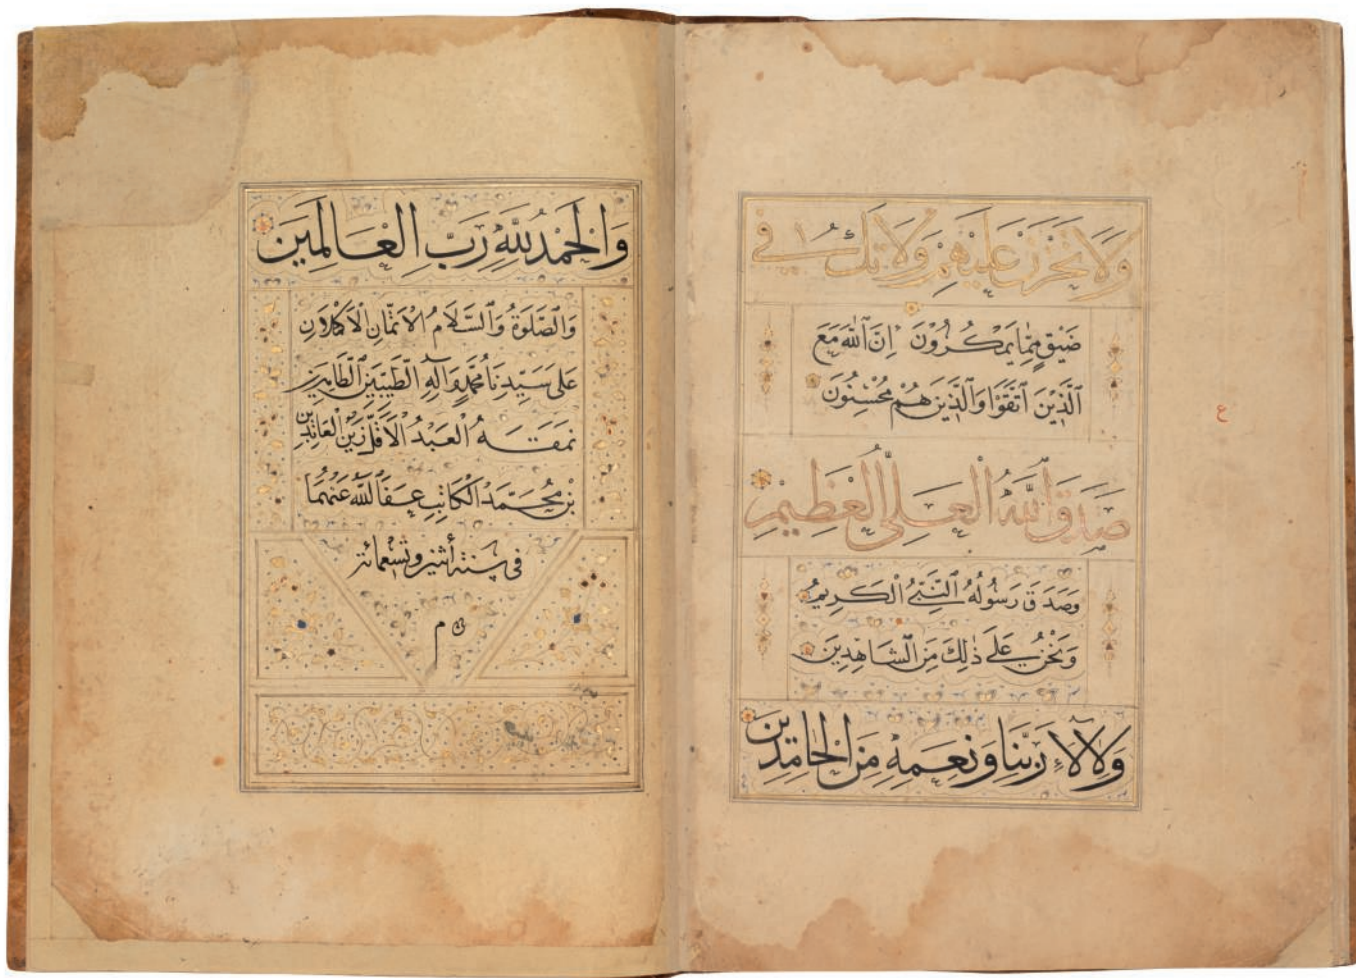 وَلَا تَحْزَنْ عَلَيْهِمْ وَلَا تَكُ فِي
ضَيْقٍ مِمَّا يَمْكُرُونَ إِنَّ ٱللَّهَ مَعَ
ٱلَّذِينَ ٱتَّقَوْا وَٱلَّذِينَ هُمْ مُحْسِنُونَ
صَدَقَ ٱللَّهُ الْعَلِيُّ الْعَظِيمُ
وَصَدَقَ رَسُولُهُ ٱلنَّبِيُّ الْكَرِيمُ
وَنَحْنُ عَلَى ذٰلِكَ مِنَ ٱلشَّاهِدِينَ
وَلِآلَاءِ رَبِّنَا وَنِعَمِهِ مِنَ الْحَامِدِينَ
ع
وَالْحَمْدُ لِلَّهِ رَبِّ الْعَالَمِينَ
وَٱلصَّلَوٰةُ وَٱلسَّلَامُ الْأَتَمَّانِ الْأَكْمَلَانِ
عَلَى سَيِّدِنَا مُحَمَّدٍ وَآلِهِ ٱلطَّيِّبِينَ ٱلطَّاهِرِينَ
نَمَقَهُ الْعَبْدُ الْأَقَلُّ زَيْنُ الْعَابِدِينَ
بْنُ مُحَمَّدٍ الْكَاتِبِ عَفَا ٱللَّهُ عَنْهُمَا
فِي سَنَةِ أثنين وتسعمائة
م